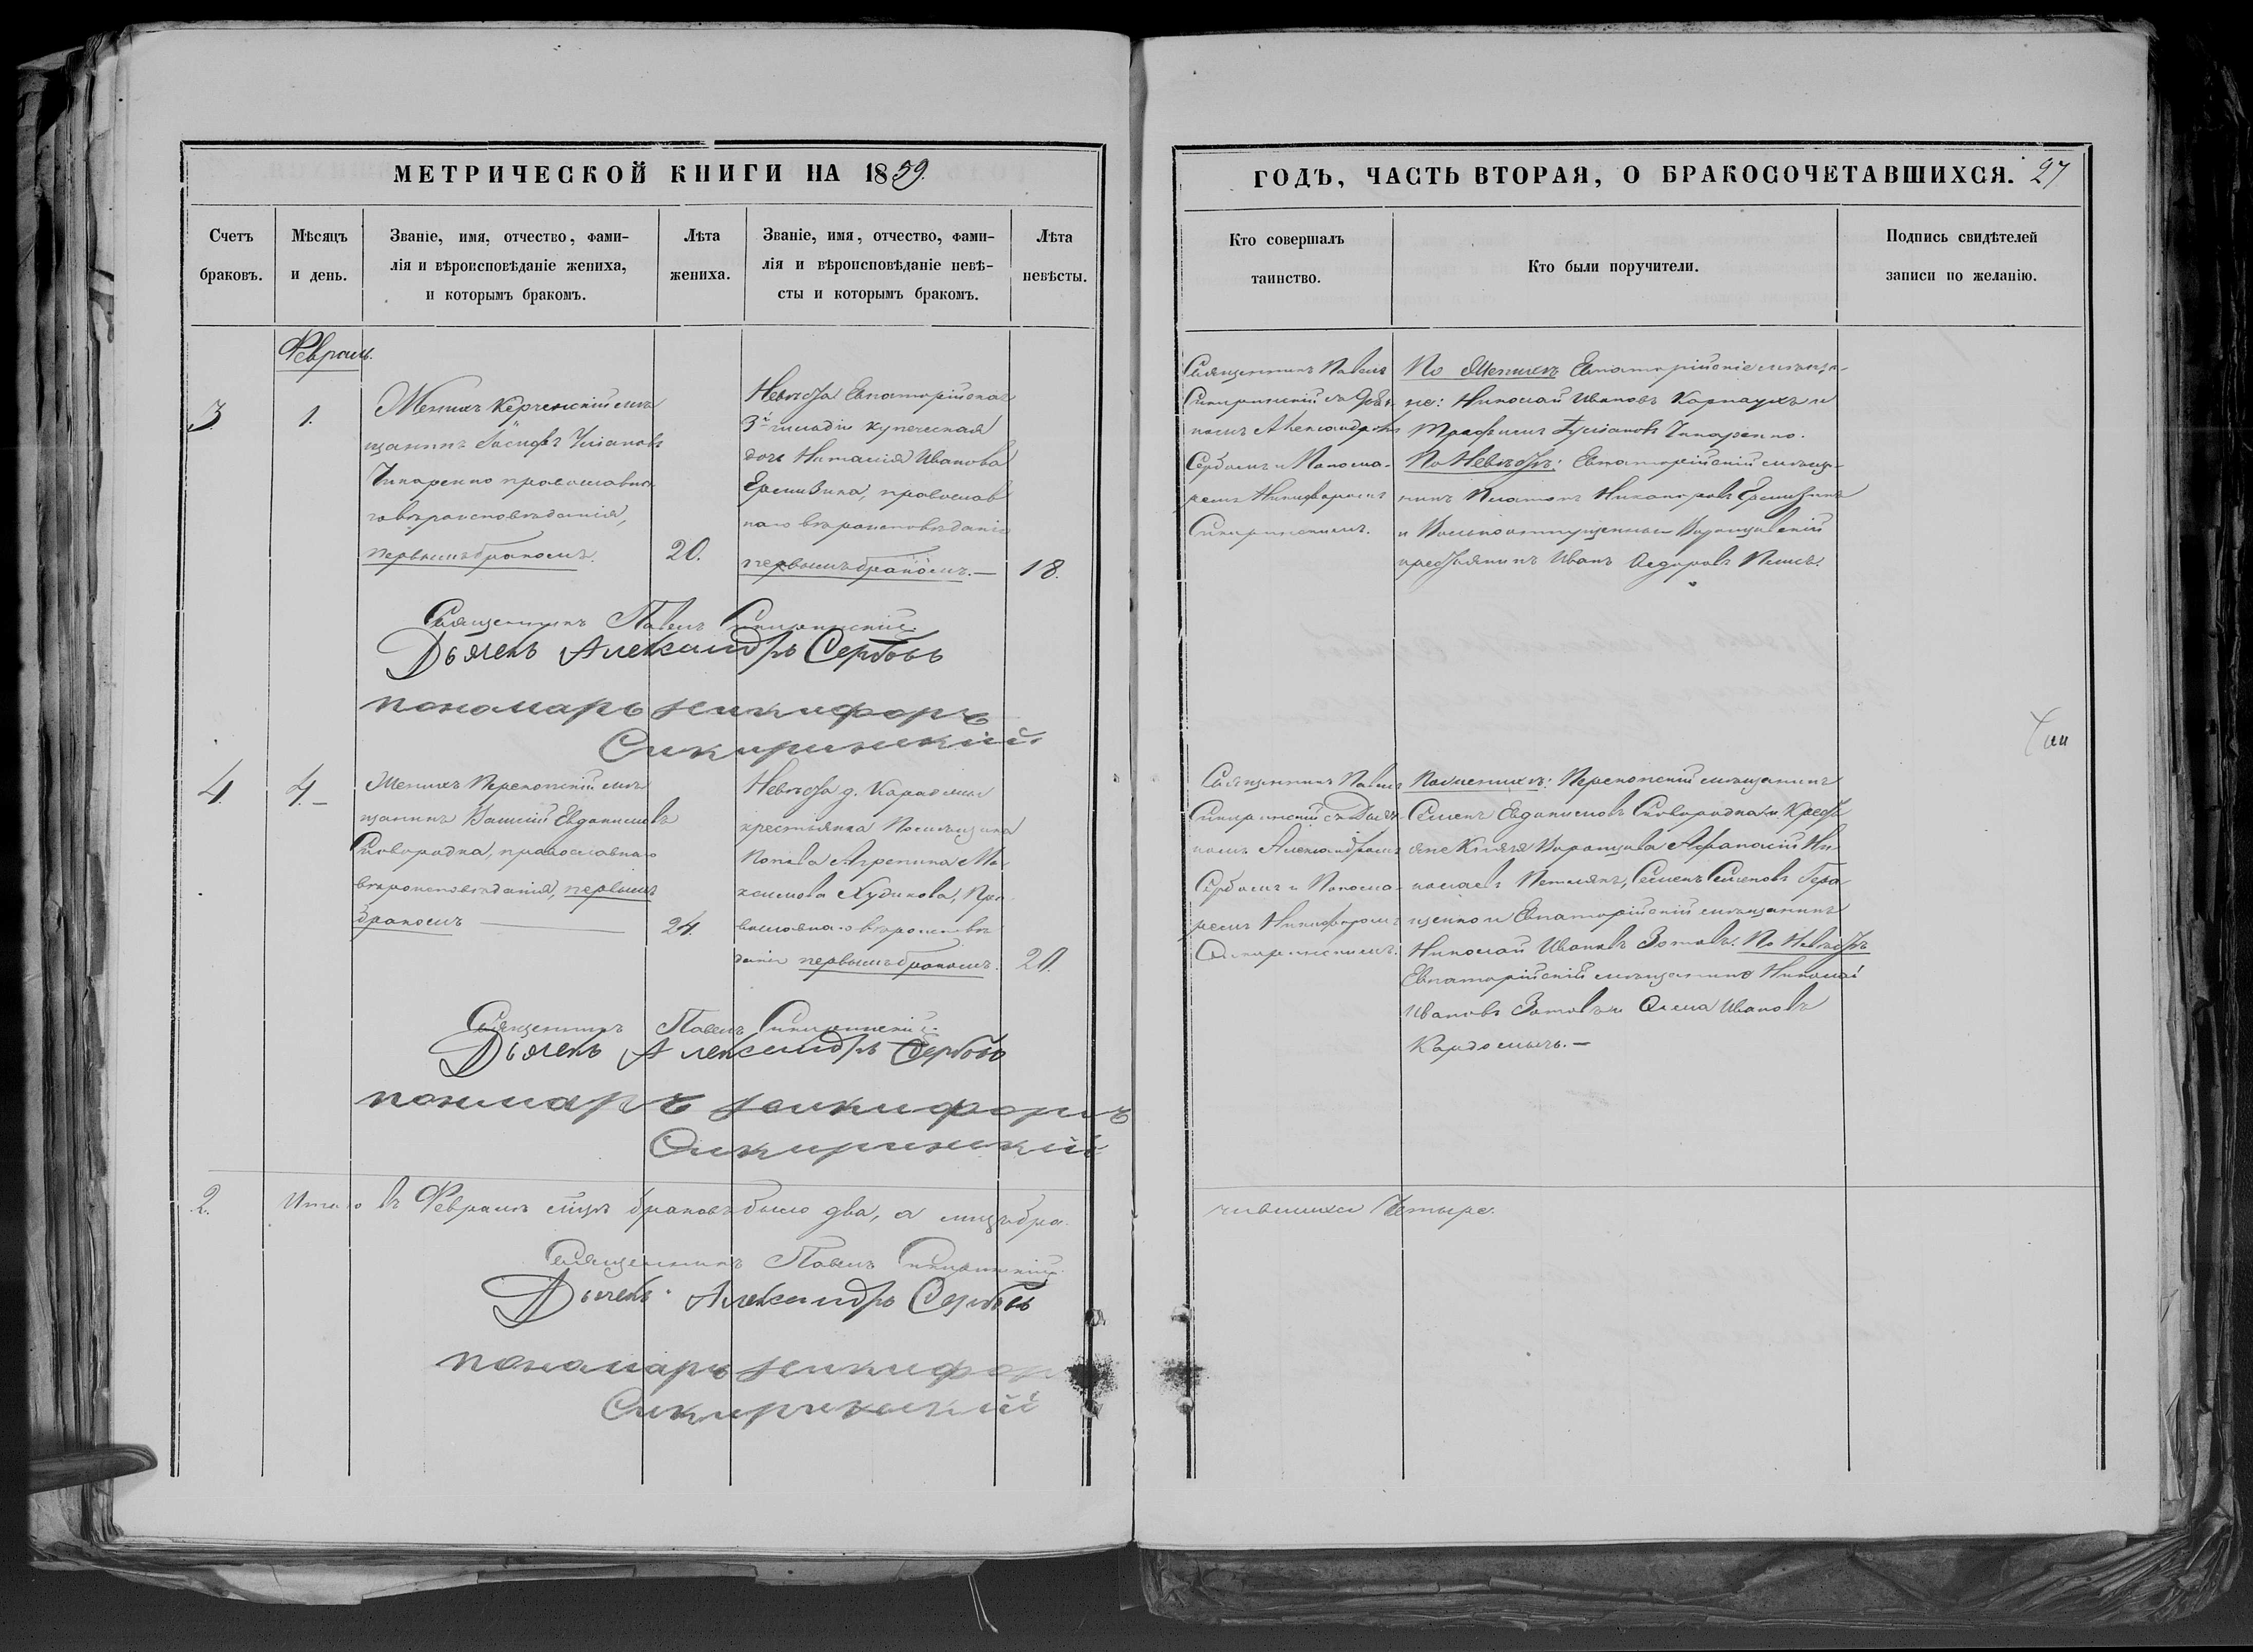 МЕТРИЧЕСКОЙ КНИГИ НА 1859.
Счетъ браковъ.
Мѣсяцъ и день.
Званіе, имя, отчество, фами-
лія и вѣроисповѣданіе жениха,
и которымъ бракомъ.
Лѣта жениха.
Званіе, имя, отчество, фами-
лія и вѣроисповѣданіе невѣ-
сты и которымъ бракомъ.
Лѣта невѣсты.
Февраль.
3.
1.
Женихъ Керченскій мѣ
щанинъ
Чипаренко православна
го вѣроисповѣданія,
первымъ бракомъ.
20.
Невѣста Евпаторійская
3й гильдіи купеческая
дочь Наталія Иванова
православ
наго вѣроисповѣданія
первымъ бракомъ.—
18.
Священникъ Павелъ Сикиринскій.
Дьячекъ Александръ Сербовъ
пономарь никифоръ
Сикиринскій
4.
4.—
Женихъ Перекопскій мѣ
щанинъ Василій Евдокимовъ
Сковородка, православнаго
вѣроисповѣданія, первымъ
бракомъ
24.
Невѣста д.
крестьянка помѣщика
Попова Агрепина Ма
ксимова Худикова, Пра
вославнаго вѣроисповѣ
данія первымъ бракомъ.
20.
Священникъ Павелъ Сикиринскій.
Дьячекъ Александръ Сербовъ
пономаръ никифоръ
Сикиринскій
2.
Итого въ Февралѣ мцѣ браковъ было два, а лицъ бра-
Священникъ Павелъ Сикиринскій.
Дьячекъ Александръ Сербовъ
пономарь никифор
Сикиринский
ГОДЪ, ЧАСТЬ ВТОРАЯ, О БРАКОСОЧЕТАВШИХСЯ. 27
Кто совершалъ таинство.
Кто были поручители.
Подпись свидѣтелей
записи по желанію.
Священникъ Павелъ
Сикиринскій съ Дьяч-
комъ Александромъ
Сербовымъ и Понома-
ремъ Никифоромъ
Сикиринскимъ.
По Женихѣ Евпаторійскіе мѣща-
не: Николай Ивановъ Карпаухъ и
Трофимъ Чипаренко.
По Невѣстѣ: Евпаторійскій мѣща-
нинъ Платонъ Никаноровъ
и Вольноотпущенный
крестьянинъ Иванъ Федоровъ
Священникъ Павелъ
Сикиринскій съ Дьяч-
комъ Александромъ
Сербовымъ и Понома-
ремъ Никифоромъ
Сикиринскимъ.
По женихѣ: Перекопскій мѣщанинъ
Семенъ Евдокимовъ Сковородка и Крестья
яне Князя Воронцова Афанасій Ни
колаевъ Семенъ Семеновъ Гера
щенко и Евпаторійскій мѣщанинъ
Николай Ивановъ Зотовъ. По Невѣстѣ
Евпаторійскій мѣщанинъ Николай
Ивановъ Зотовъ и Ивановъ
чившихся Четыре.